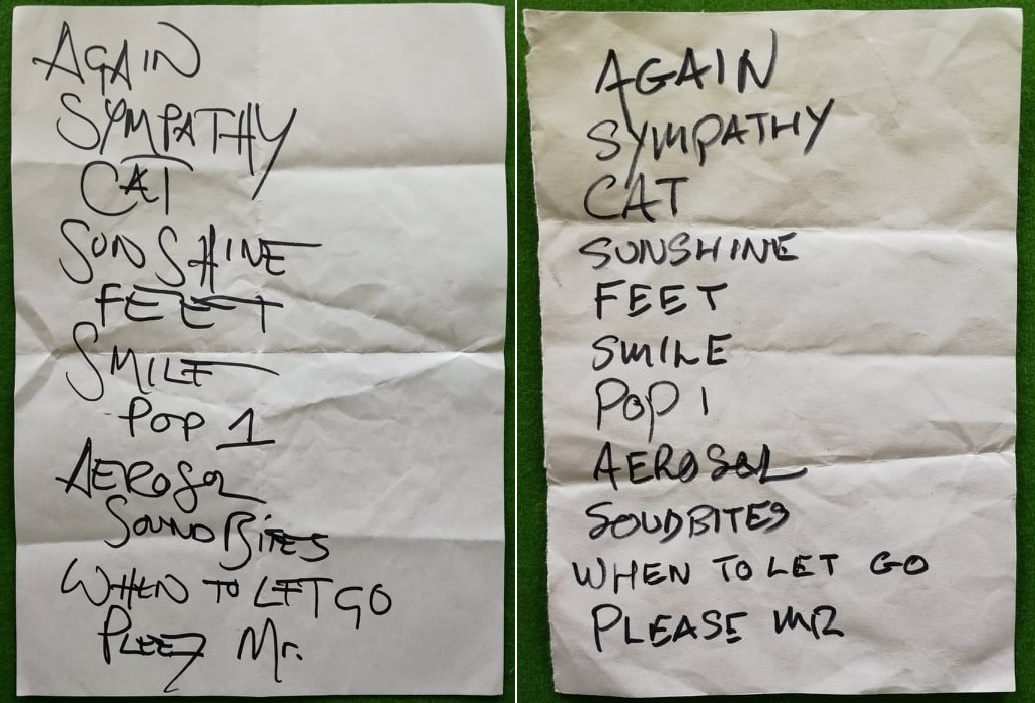 AGAIN
SYMPATHY
CAT
SUNSHINE
FEET
SMILE
POP 1
AEROSOL
SOUNDBITES
WHEN TO LET GO
PLEEZ Mr.
AGAIN
SYMPATHY
CAT
SUNSHINE
FEET
SMILE
POP 1
AEROSOL
SOUDBITES
WHEN TO LET GO
PLEASE MR